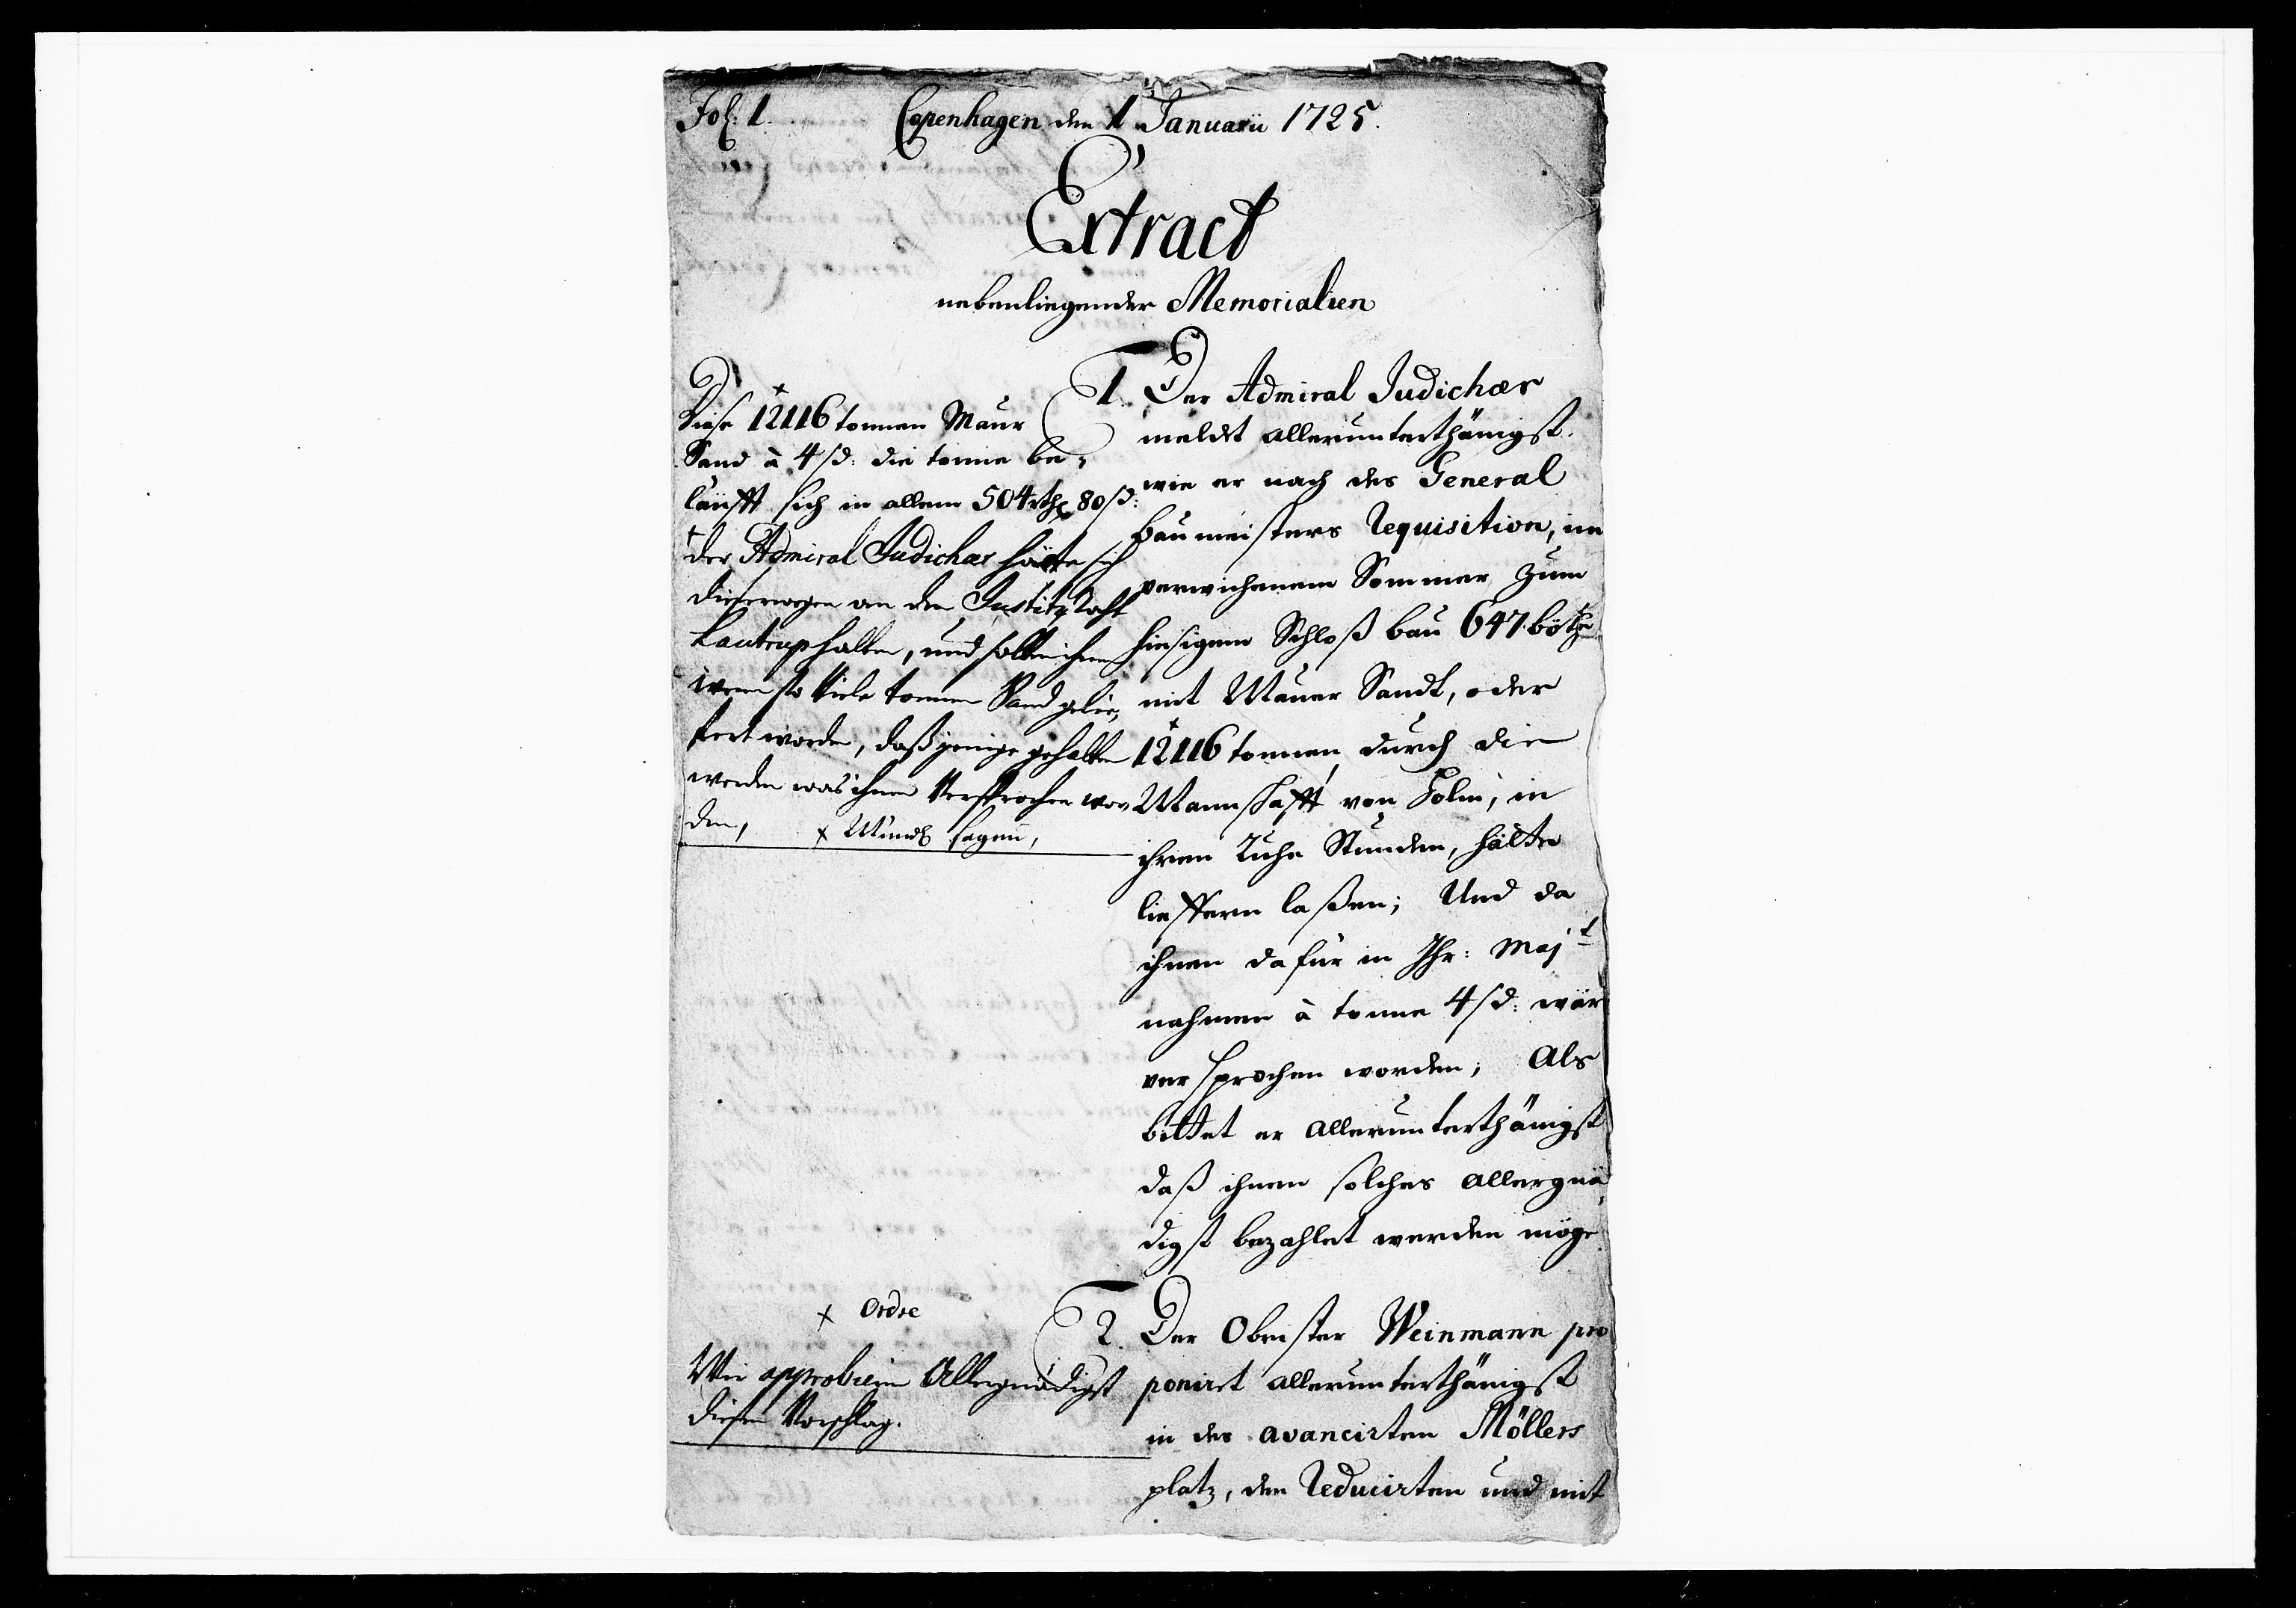 Fol: 1.
Copenhagen den 1 Januarii 1725.
Extract
nebenliegender Memorialien
Diese 12116 tonnen Maur
Sand à 4 ß d: die tonne be-
läufft sich in allem 504 rthl 80 ß:
der Admiral Judichær hätte sich
dieserwegen an den Justitz Raht
Lautrup halten, und sollte ihnen
wenn so viele tonnen Sand gelie-
fert worden, dasjenige gehalten
werden was ihnen versprochen wor
den,
x Mündl sagen,
1. Der Admiral Judichær
meldet allerunterthänigst.
wie er nach des General
baumeisters Requisition, im
verwichenem Sommer zum
hiesigem Schloß bau 647 böthe
mit Mauer Sandt, oder
12116 tonnen, durch die
Mannschafft von Holm, in
ihren Ruhe Stunden, hätte
lieffern laßen; Und da
ihnen dafür in Ihr: Majt
nahmen à tonne 4 ß d: wär
versprochen worden; Als
bittet er allerunterthänigst
daß ihnen solches allergnä
digst bezahlet werden möge
x Ordre
Wir approbiren Allergnädigst
diesen Vorschlag.
2. Der Obrister Weinmann pro
ponirt allerunterthänigst
in des avancirten Möllers
platz, den Reducirten und mit